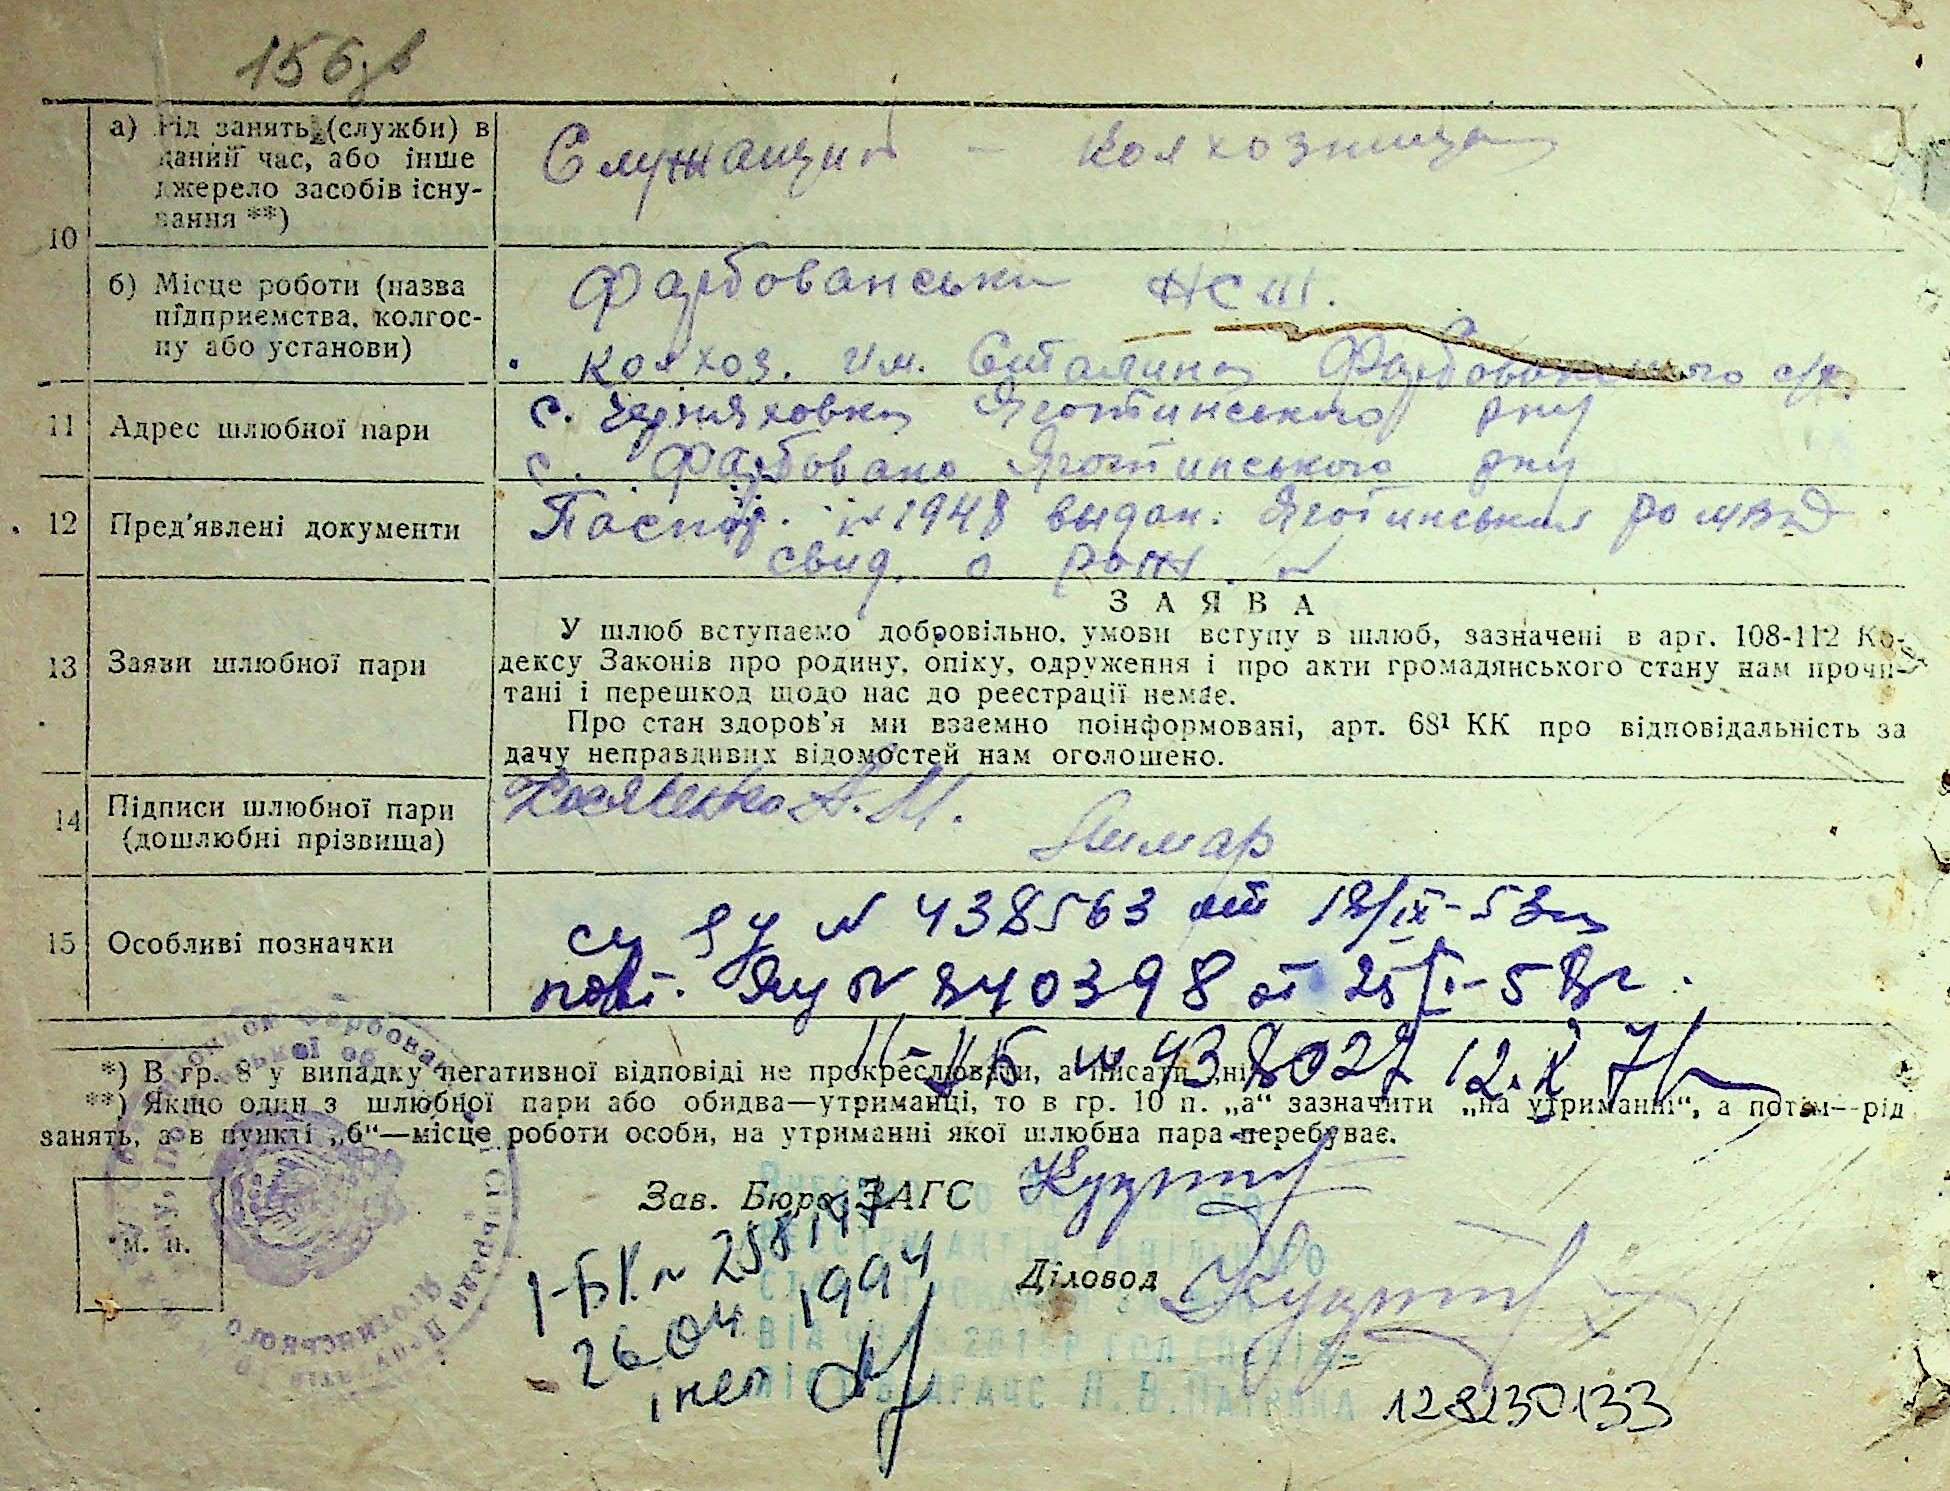 156зв
10
а) Рід занять (служби) в
даний час, або інше
джерело засобів існу-
вання **)
Служащий - колхозница
б) Місце роботи (назва
підприємства, колгос-
пу або установи)
Фарбованська НСШ.
колхоз. им. Сталина Фарбованського с/с.
11
Адрес шлюбної пари
с. Черняховка Яготинського р-ну
с. Фарбовано Яготинського р-ну
12
Пред'явлені документи
Паспор. № 1948 выдан. Яготинським РО МВД
свид. о рожд. №
13
Заяви шлюбної пари
ЗАЯВА
У шлюб вступаємо добровільно, умови вступу в шлюб, зазначені в арт. 108-112 Ко-
дексу Законів про родину, опіку, одруження і про акти громадянського стану нам прочи-
тані і перешкод щодо нас до реєстрації немає.
Про стан здоров'я ми взаємно поінформовані, арт. 68¹ КК про відповідальність за
дачу неправдивих відомостей нам оголошено.
14
Підписи шлюбної пари
(дошлюбні прізвища)
А. М.
Лимар
15
Особливі позначки
№ 438563 от 18/IX-53г
повт. ЯУ № 840398 от 25/
№ 438027 12.X 71
*) В гр. 8 у випадку негативної відповіді не прокреслювати, а писати „ні“
**) Якщо один з шлюбної пари або обидва—утриманці, то в гр. 10 п. „а“ зазначити „на утриманні“, а потім—рід
занять, а в пункті „б“—місце роботи особи, на утриманні якої шлюбна пара перебуває.
Зав. Бюро ЗАГС
м. п.
І-БК № 258147
26.04 1994
Діловод
128130133